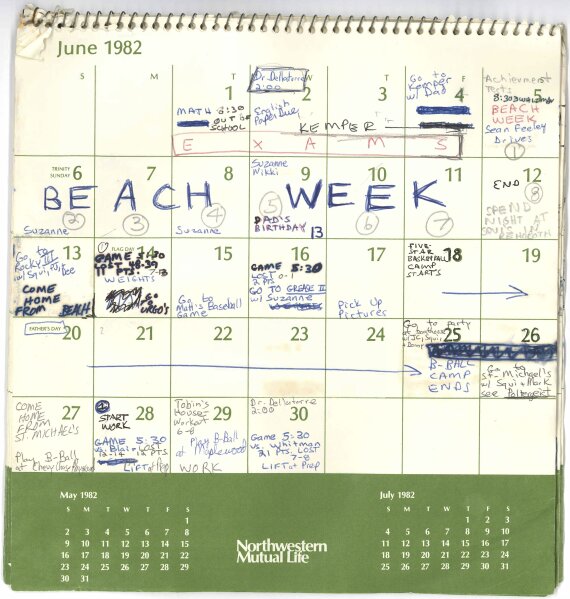 June 1982
S M T W T F S
1
MATH 8:30
OUT OF
SCHOOL
2
Dr. Dellatorre
2:00
English
Paper Due
3
KEMPER
4
Go to
Kemper
w/ Dad
5
Achievment
Tests
8:30
BEACH
WEEK
Sean Feeley
Dr. Ives
1
E X A M S
TRINITY
SUNDAY
6
2
Suzanne
7
3
8
4
Suzanne
9
Suzanne
Nikki
5
DAD'S
BIRTHDAY
10
6
13
11
7
12
END
8
SPEND
NIGHT AT
SQUI'S IN
REHOBOTH
BEACH WEEK
13
Go to
ROCKY III
w/ Squi, PJ,
Dee
COME
HOME
FROM BEACH
FLAG DAY
14
GAME 5:30
LOST 48-39
11 PTS. 7-8
WEIGHTS
GO
URGO'S
15
Go to
Matt's Baseball
Game
16
GAME 5:30
LOST 0-1
2 PTS.
GO TO GREASE II
w/ Suzanne
17
Pick Up
Pictures
18
FIVE-
STAR
BASKETBALL
CAMP
STARTS
19
FATHER'S DAY
20
21
22
23
24
25
Go to party
at
w/ JC, Squi
B-BALL
CAMP
ENDS
26
Go to
St. Michael's
w/ Squi + Mark
see Poltergeist
27
COME
HOME
FROM
ST. MICHAEL'S
Play B-Ball
at Chevy Chase
28
START
WORK
GAME 5:30
vs. Blair LOST
12-14 12 PTS.
LIFT at Prep
29
Tobin's
House-
Workout
6-8
Play B-Ball
at Maplewood
WORK
30
Dr. Dellatorre
2:00
Game 5:30
vs. Whitman
21 PTS. LOST
7-8
LIFT at Prep
May 1982
S M T W T F S
1
2 3 4 5 6 7 8
9 10 11 12 13 14 15
16 17 18 19 20 21 22
23 24 25 26 27 28 29
30 31
Northwestern
Mutual Life
July 1982
S M T W T F S
1 2 3
4 5 6 7 8 9 10
11 12 13 14 15 16 17
18 19 20 21 22 23 24
25 26 27 28 29 30 31